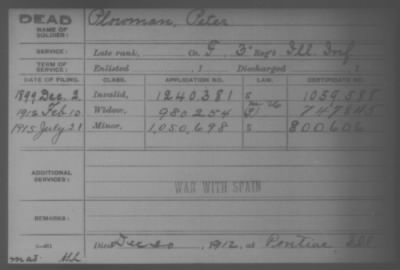 DEAD
NAME OF SOLDIER:
Plowman, Peter
SERVICE:
Late rank, Co. G, 3" Reg't Ill. Inf
TERM OF SERVICE:
Enlisted , 1 Discharged , 1
DATE OF FILING. CLASS. APPLICATION NO. LAW. CERTIFICATE NO.
1899 Dec. 2 Invalid, 1240,381 S 1039,588
Widow, 980254 747845
1915 July 21 Minor, 1,050,698 S 800606
ADDITIONAL SERVICES:
WAR WITH SPAIN
REMARKS:
Died Dec 20, 1912, at Pontiac, Ill.